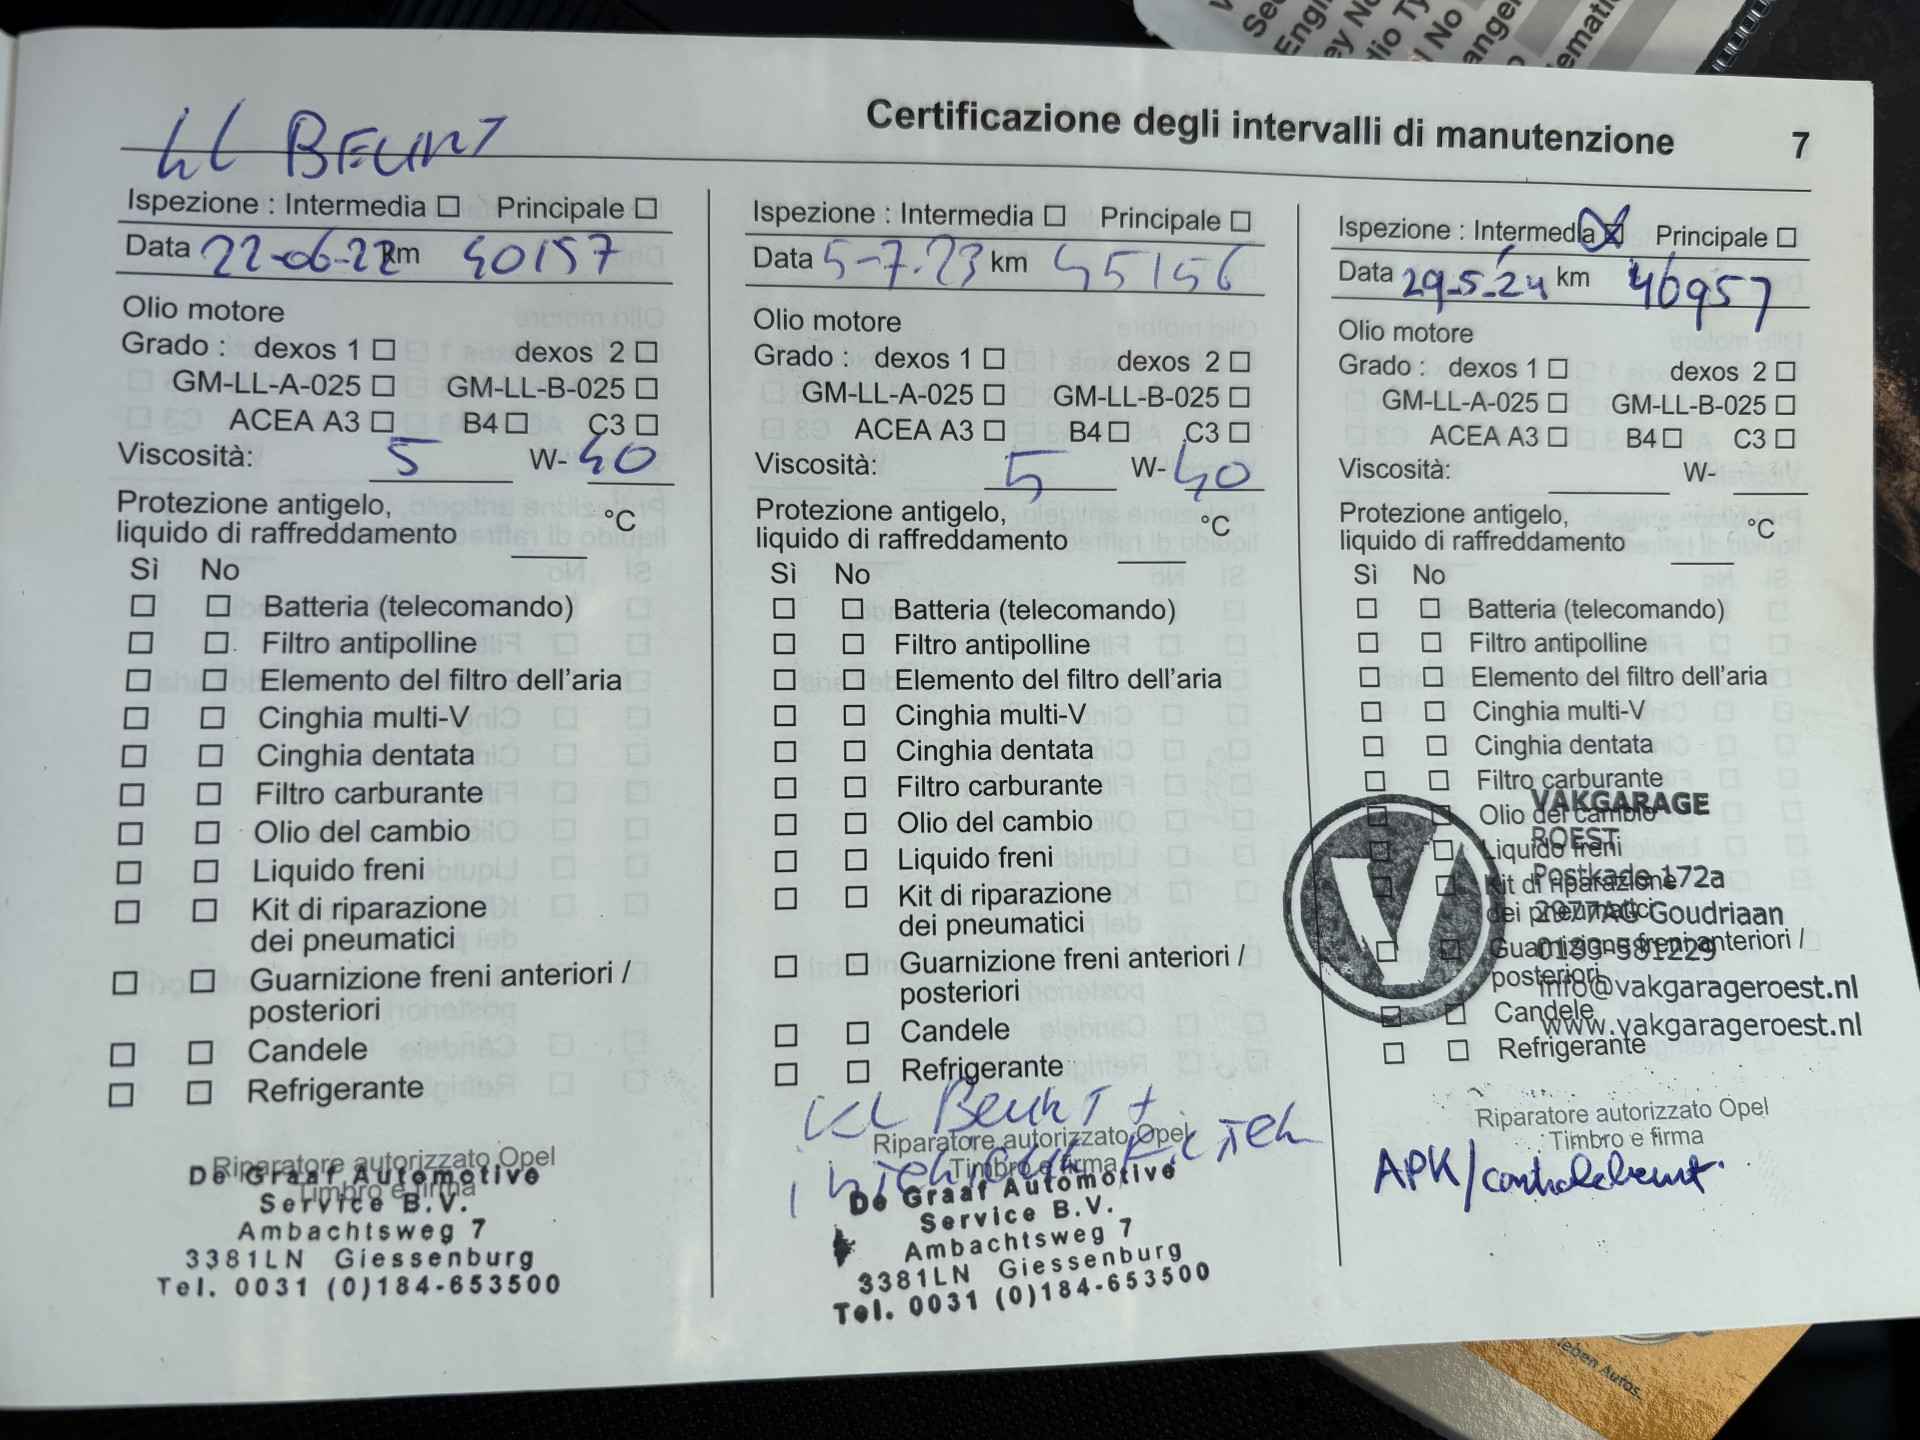 Certificazione degli intervalli di manutenzione 7
KL BEURT
Ispezione : Intermedia ☐ Principale ☐
Data 22-06-22 km 40157
Olio motore
Grado : dexos 1 ☐ dexos 2 ☐
GM-LL-A-025 ☐ GM-LL-B-025 ☐
ACEA A3 ☐ B4 ☐ C3 ☐
Viscosità: 5 W- 40
Protezione antigelo,
liquido di raffreddamento °C
Sì No
☐ ☐ Batteria (telecomando)
☐ ☐ Filtro antipolline
☐ ☐ Elemento del filtro dell'aria
☐ ☐ Cinghia multi-V
☐ ☐ Cinghia dentata
☐ ☐ Filtro carburante
☐ ☐ Olio del cambio
☐ ☐ Liquido freni
☐ ☐ Kit di riparazione
dei pneumatici
☐ ☐ Guarnizione freni anteriori /
posteriori
☐ ☐ Candele
☐ ☐ Refrigerante
Riparatore autorizzato Opel
Timbro e firma
De Graaf Automotive
Service B.V.
Ambachtsweg 7
3381LN Giessenburg
Tel. 0031 (0)184-653500
Ispezione : Intermedia ☐ Principale ☐
Data 5-7-23 km 45156
Olio motore
Grado : dexos 1 ☐ dexos 2 ☐
GM-LL-A-025 ☐ GM-LL-B-025 ☐
ACEA A3 ☐ B4 ☐ C3 ☐
Viscosità: 5 W- 40
Protezione antigelo,
liquido di raffreddamento °C
Sì No
☐ ☐ Batteria (telecomando)
☐ ☐ Filtro antipolline
☐ ☐ Elemento del filtro dell'aria
☐ ☐ Cinghia multi-V
☐ ☐ Cinghia dentata
☐ ☐ Filtro carburante
☐ ☐ Olio del cambio
☐ ☐ Liquido freni
☐ ☐ Kit di riparazione
dei pneumatici
☐ ☐ Guarnizione freni anteriori /
posteriori
☐ ☐ Candele
☐ ☐ Refrigerante
KL BEURT +
Riparatore autorizzato Opel
Timbro e firma
De Graaf Automotive
Service B.V.
Ambachtsweg 7
3381LN Giessenburg
Tel. 0031 (0)184-653500
Ispezione : Intermedia ☒ Principale ☐
Data 29-5-24 km 46957
Olio motore
Grado : dexos 1 ☐ dexos 2 ☐
GM-LL-A-025 ☐ GM-LL-B-025 ☐
ACEA A3 ☐ B4 ☐ C3 ☐
Viscosità: W-
Protezione antigelo,
liquido di raffreddamento °C
Sì No
☐ ☐ Batteria (telecomando)
☐ ☐ Filtro antipolline
☐ ☐ Elemento del filtro dell'aria
☐ ☐ Cinghia multi-V
☐ ☐ Cinghia dentata
☐ ☐ Filtro carburante
☐ ☐ Olio del cambio
☐ ☐ Liquido freni
☐ ☐ Kit di riparazione
dei pneumatici
☐ ☐ Guarnizione freni anteriori /
posteriori
☐ ☐ Candele
☐ ☐ Refrigerante
V
VAKGARAGE
ROEST
Postkade 172a
2977AG Goudriaan
0183-581229
info@vakgarageroest.nl
www.vakgarageroest.nl
Riparatore autorizzato Opel
Timbro e firma
APK/controlebeurt
leben Autos.